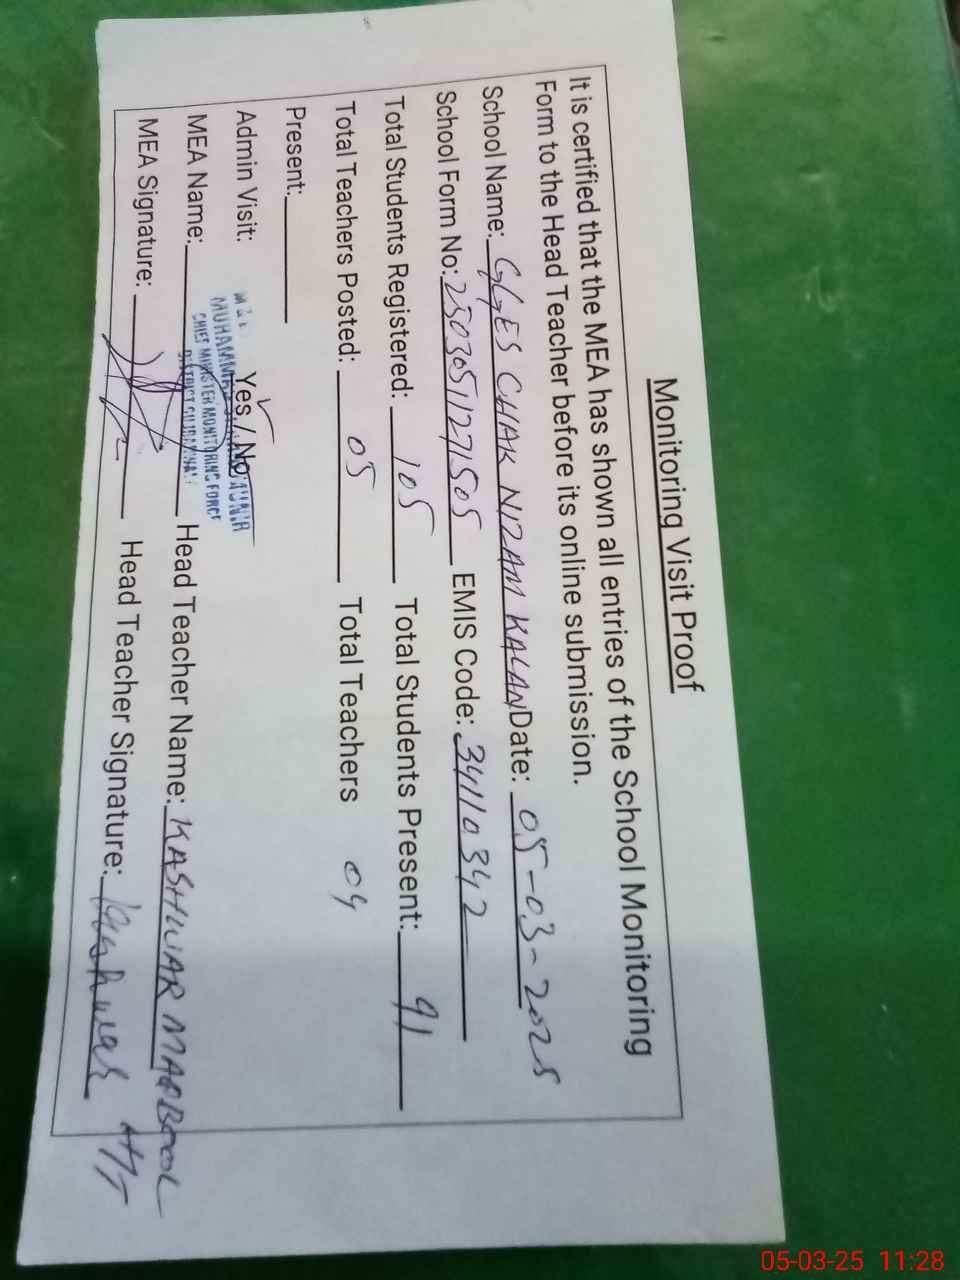 Monitoring Visit Proof
It is certified that the MEA has shown all entries of the School Monitoring
Form to the Head Teacher before its online submission.
School Name: GGES CHAK NIZAM KALAN Date: 05-03-2025
School Form No: 2503051271505 EMIS Code: 34110342
Total Students Registered: 105 Total Students Present: 91
Total Teachers Posted: 05 Total Teachers 04
Present:
Admin Visit: Yes / No
MEA Name: Head Teacher Name: KASHWAR MAQBOOL
MEA Signature: Head Teacher Signature: Kashwar HT
MUHAMMAD
CHIEF MINISTER MONITORING FORCE
DISTRICT GUJRANWALA
05-03-25 11:28